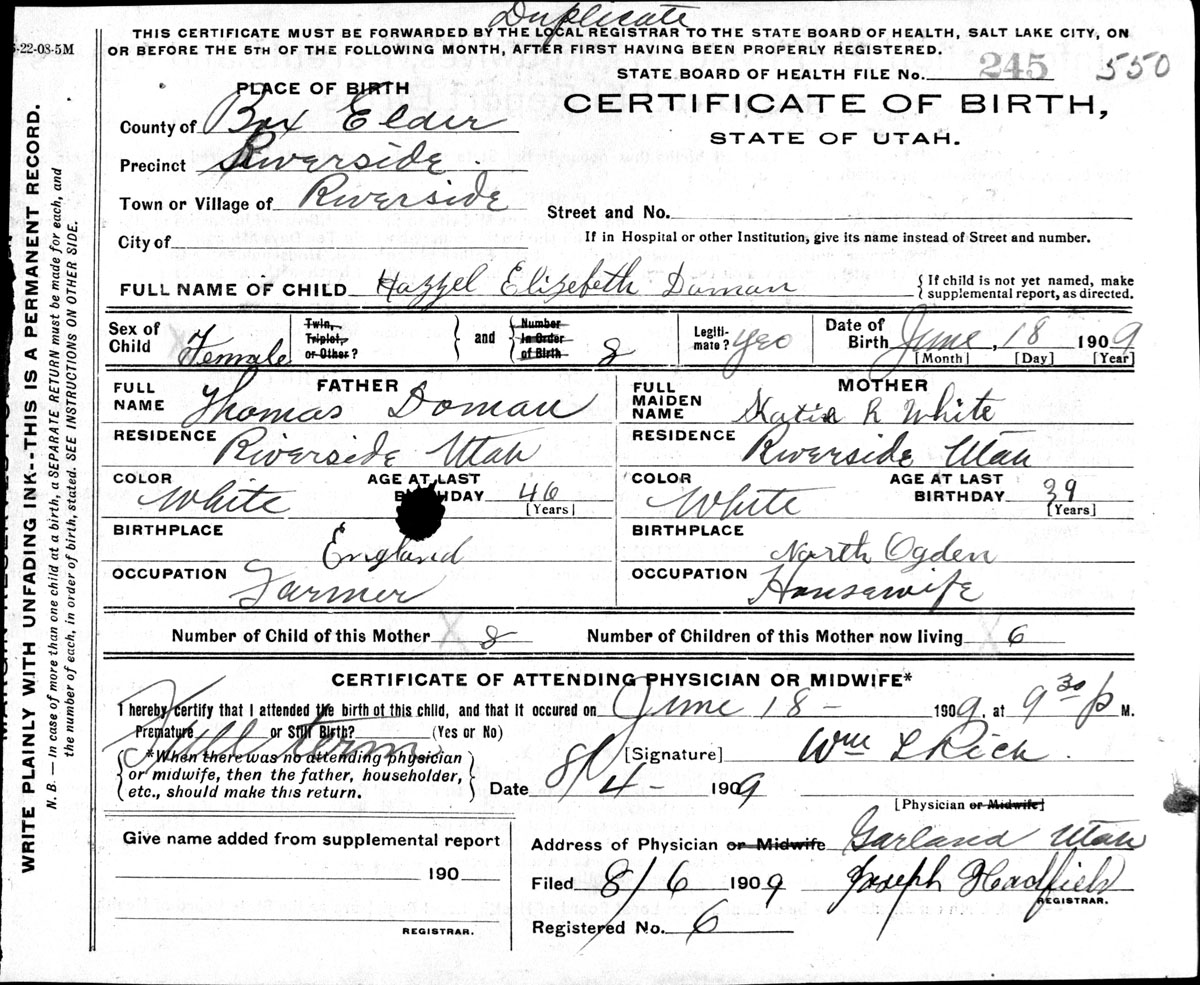 Duplicate
THIS CERTIFICATE MUST BE FORWARDED BY THE LOCAL REGISTRAR TO THE STATE BOARD OF HEALTH, SALT LAKE CITY, ON
OR BEFORE THE 5TH OF THE FOLLOWING MONTH, AFTER FIRST HAVING BEEN PROPERLY REGISTERED.
-22-08-5M
STATE BOARD OF HEALTH FILE No. 245 550
PLACE OF BIRTH
CERTIFICATE OF BIRTH,
STATE OF UTAH.
County of Box Elder
Precinct Riverside
Town or Village of Riverside
Street and No.
City of
If in Hospital or other Institution, give its name instead of Street and number.
FULL NAME OF CHILD Hazzel Elizebeth Doman
{ If child is not yet named, make supplemental report, as directed.
Sex of Child Female
Twin, Triplet, or Other?
and
Number in Order of Birth 8
Legitimate? yes
Date of Birth June, 18 1909
[Month] [Day] [Year]
FATHER
FULL NAME Thomas Doman
RESIDENCE Riverside Utah
COLOR White
AGE AT LAST BIRTHDAY 46
[Years]
BIRTHPLACE England
OCCUPATION Farmer
MOTHER
FULL MAIDEN NAME Katie R White
RESIDENCE Riverside Utah
COLOR White
AGE AT LAST BIRTHDAY 39
[Years]
BIRTHPLACE North Ogden
OCCUPATION Housewife
Number of Child of this Mother 8 Number of Children of this Mother now living 6
CERTIFICATE OF ATTENDING PHYSICIAN OR MIDWIFE*
I hereby certify that I attended the birth of this child, and that it occured on June 18 - 1909, at 9 30 p M.
Premature or Still Birth? (Yes or No)
Full term
*When there was no attending physician
or midwife, then the father, householder,
etc., should make this return.
[Signature] Wm L Rich
Date 8/4 - 1909
[Physician or Midwife]
Give name added from supplemental report
190
REGISTRAR.
Address of Physician or Midwife Garland Utah
Filed 8/6 1909 Joseph Hadfield
REGISTRAR.
Registered No. 6
WRITE PLAINLY WITH UNFADING INK--THIS IS A PERMANENT RECORD.
N. B. — In case of more than one child at a birth, a SEPARATE RETURN must be made for each, and
the number of each, in order of birth, stated. SEE INSTRUCTIONS ON OTHER SIDE.